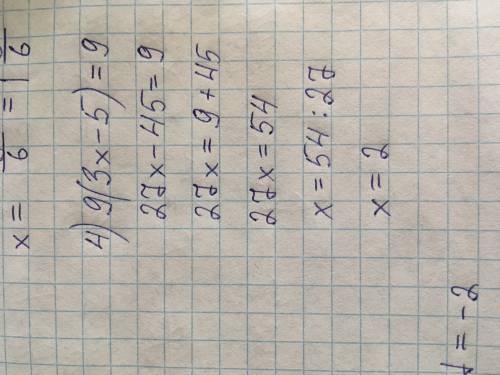 x = 6 = 1 6
4) 9(3x-5) = 9
27x - 45 = 9
27x = 9 + 45
27x = 54
x = 54 : 27
x = 2
= -2